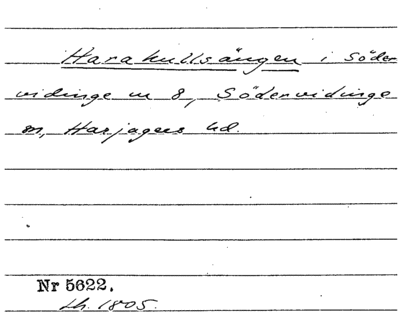 Harakullsängen i Söder
vidinge nr 8, Södervidinge
sn, Harjagers hd.
Nr 5622.
Lh. 1805.